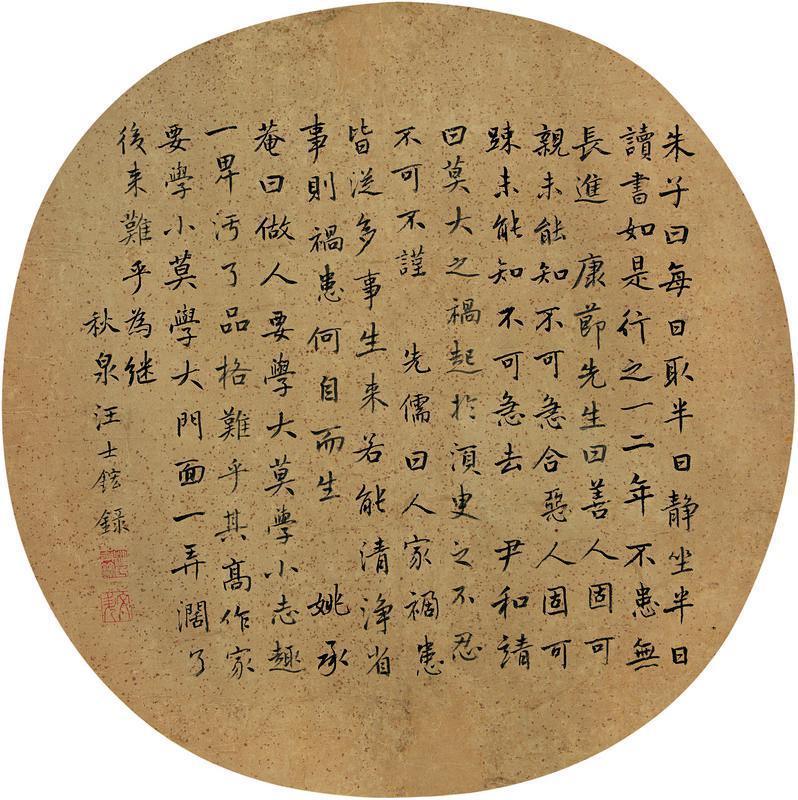 朱子曰每日取半日静坐半日
讀書如是行之一二年不患無
長進　康節先生曰善人固可
親未能知不可急合惡人固可
踈未能知不可急去　尹和靖
曰莫大之禍起於須臾之不忍
不可不謹　先儒曰人家禍患
皆從多事生来若能清淨省
事則禍患何自而生　姚承
菴曰做人要學大莫學小志趣
一卑汚了品格難乎其髙作家
要學小莫學大門面一弄濶了
後来難乎為継
秋泉汪士鋐録